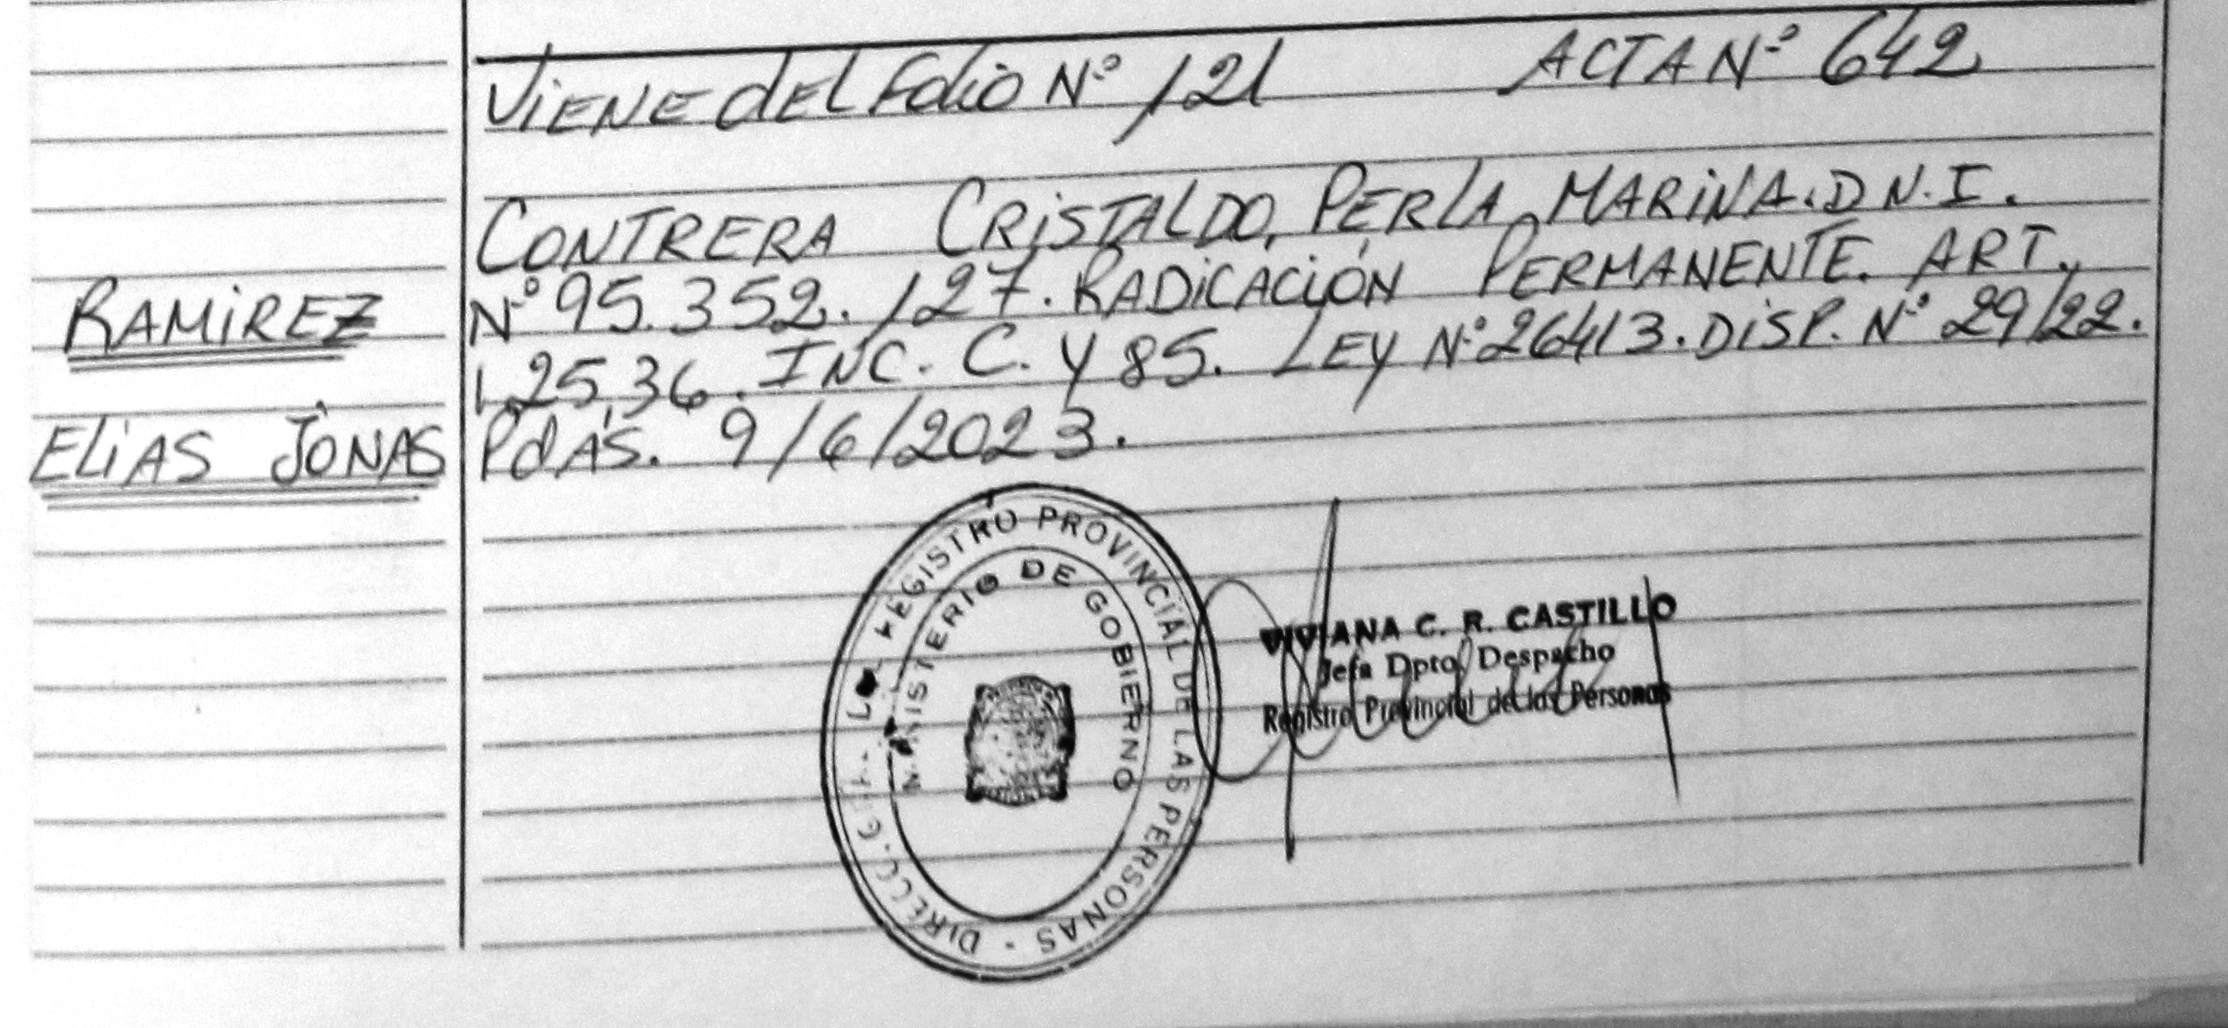 Viene del Folio Nº 121 ACTA Nº 642
CONTRERA CRISTALDO, PERLA MARINA. D N.I.
Nº 95.352.127. RADICACIÓN PERMANENTE. ART.
1,25,36. INC. C. Y 85. LEY Nº 26413. DISP. Nº 29/22.
PdAS. 9/6/2023.
RAMIREZ
ELIAS JONAS
REGISTRO PROVINCIAL DE LAS PERSONAS
MINISTERIO DE GOBIERNO
VIVIANA C. R. CASTILLO
Jefa Dpto. Despacho
Registro Provincial de las Personas